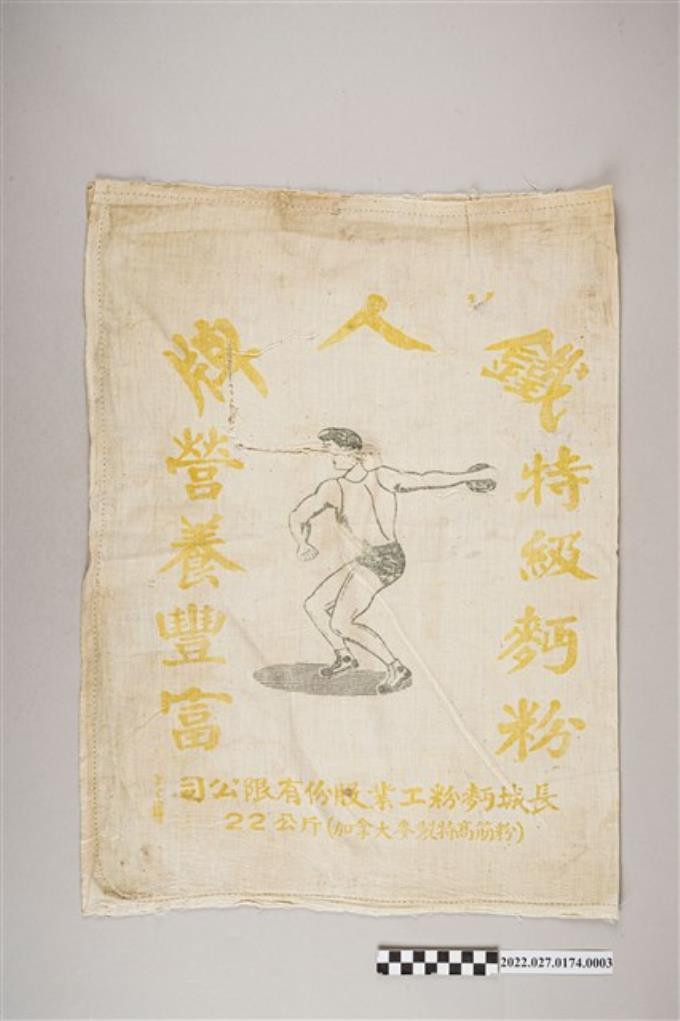 人牌
特級麪粉
營養豐富
長城麪粉工業股份有限公司
22公斤(加拿大麥製特高筋粉)
2022.027.0174.0003